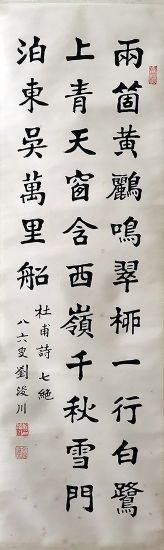 兩箇黃鸝鳴翠柳一行白鷺
上青天窗含西嶺千秋雪門
泊東吳萬里船
杜甫詩七絕
八六叟劉浚川